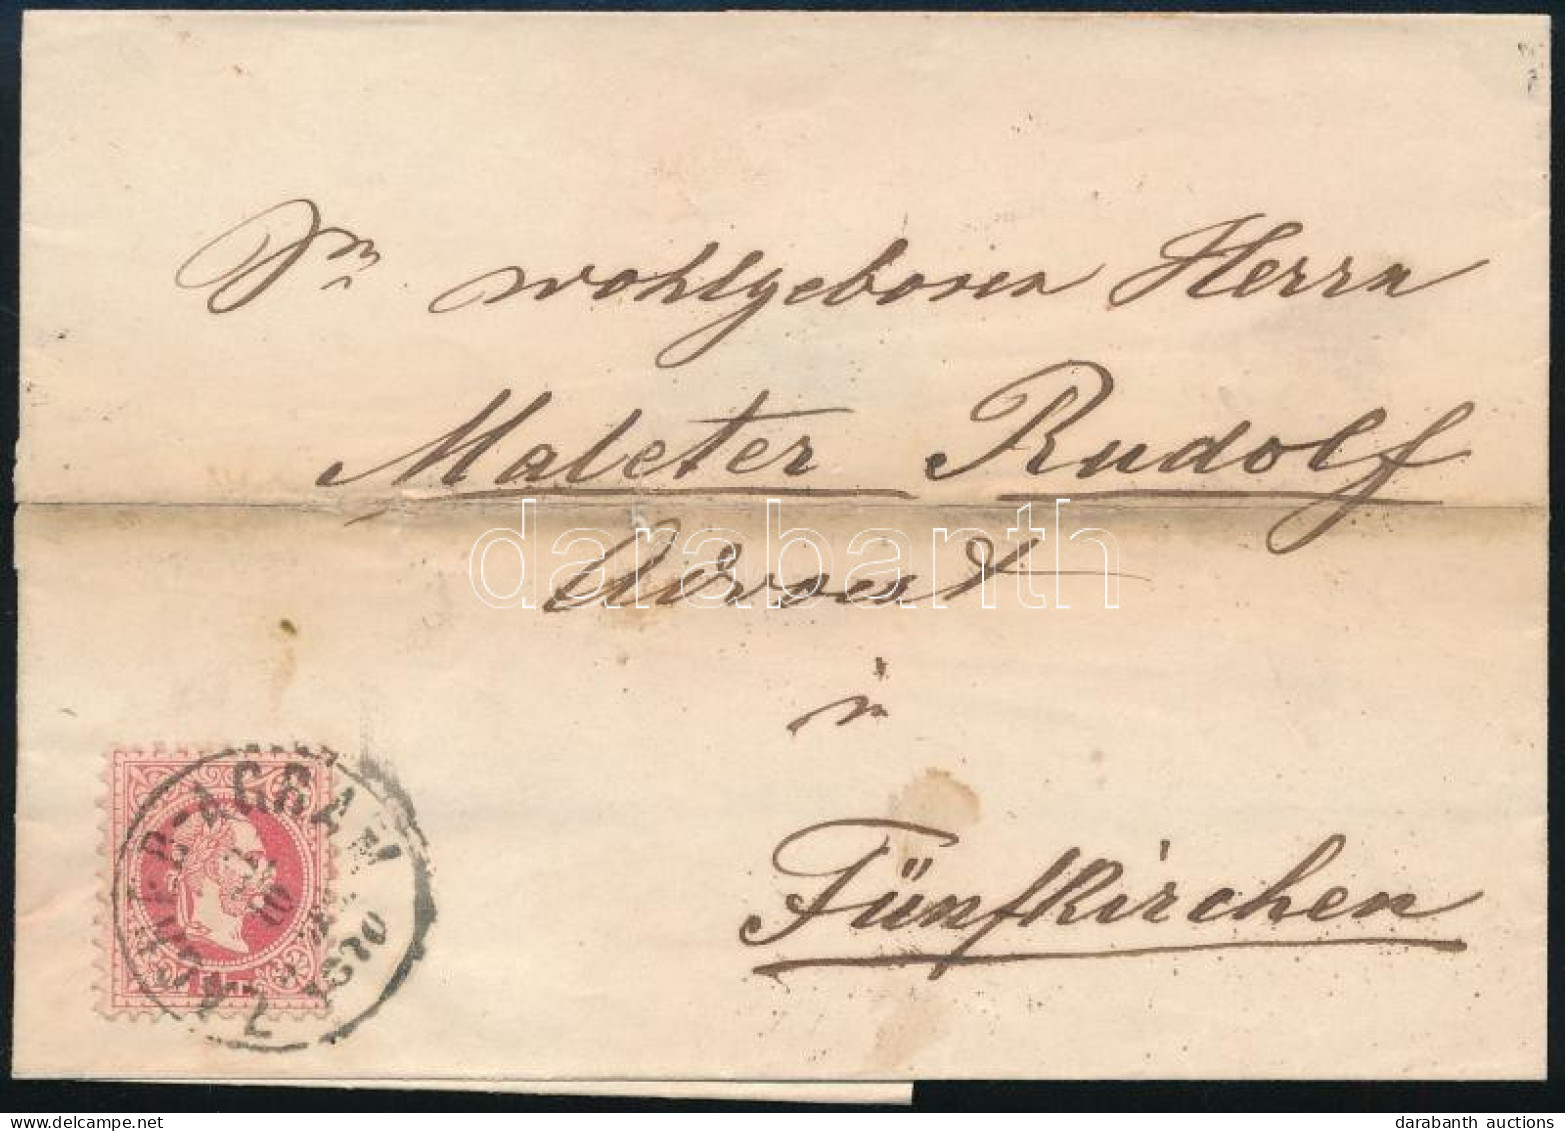 Sr wohlgeboren Herrn
Maleter Rudolf
Advocat
in
Fünfkirchen
AGRAM
10
1870
darabanth
darabanth auctions